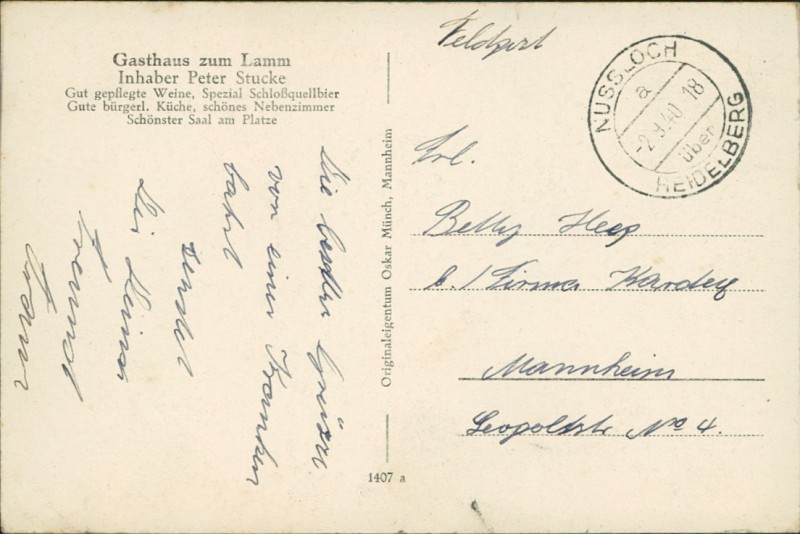 Gasthaus zum Lamm
Inhaber Peter Stucke
Gut gepflegte Weine, Spezial Schloßquellbier
Gute bürgerl. Küche, schönes Nebenzimmer
Schönster Saal am Platze
Die besten Grüße
von einer Kranken
bahrt
sendet
Dir Deiner
Originaleigentum Oskar Münch, Mannheim
1407 a
Feldpost
NUSSLOCH
a
-2.9.40 18
über
HEIDELBERG
Frl.
Betty Heep
b./Firma
Mannheim
Leopoldstr No 4.